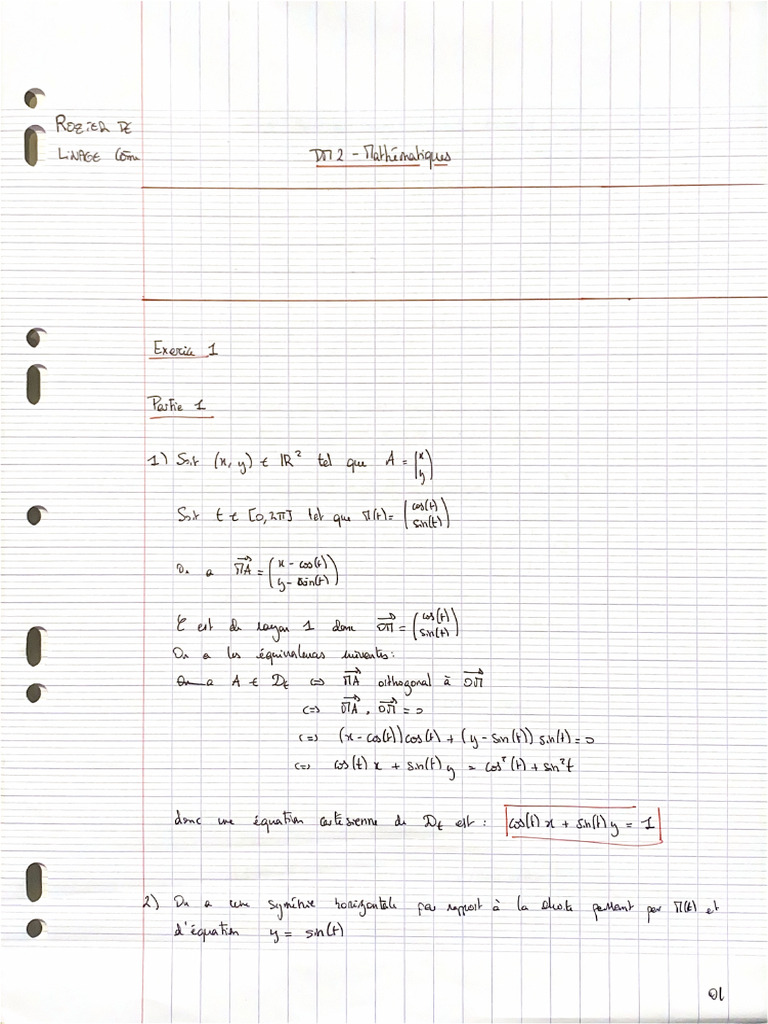 ROZIER DE
LINAGE Côme
DM 2 - Mathématiques
Exercice 1
Partie 1
1) Soit (x, y) ∈ IR² tel que A = (x y)
Soit t ∈ [0, 2π] tel que M(t) = (cos(t) sin(t))
On a MA→ = (x - cos(t) y - sin(t))
C est de rayon 1 donc OM→ = (cos(t) sin(t))
On a les équivalences suivantes :
A ∈ Dt <=> MA→ orthogonal à OM→
<=> MA→ . OM→ = 0
<=> (x - cos(t)) cos(t) + (y - sin(t)) sin(t) = 0
<=> cos(t) x + sin(t) y = cos²(t) + sin²t
donc une équation cartésienne de Dt est : cos(t) x + sin(t) y = 1
2) On a une symétrie horizontale par rapport à la droite passant par M(t) et
d'équation y = sin(t)
01